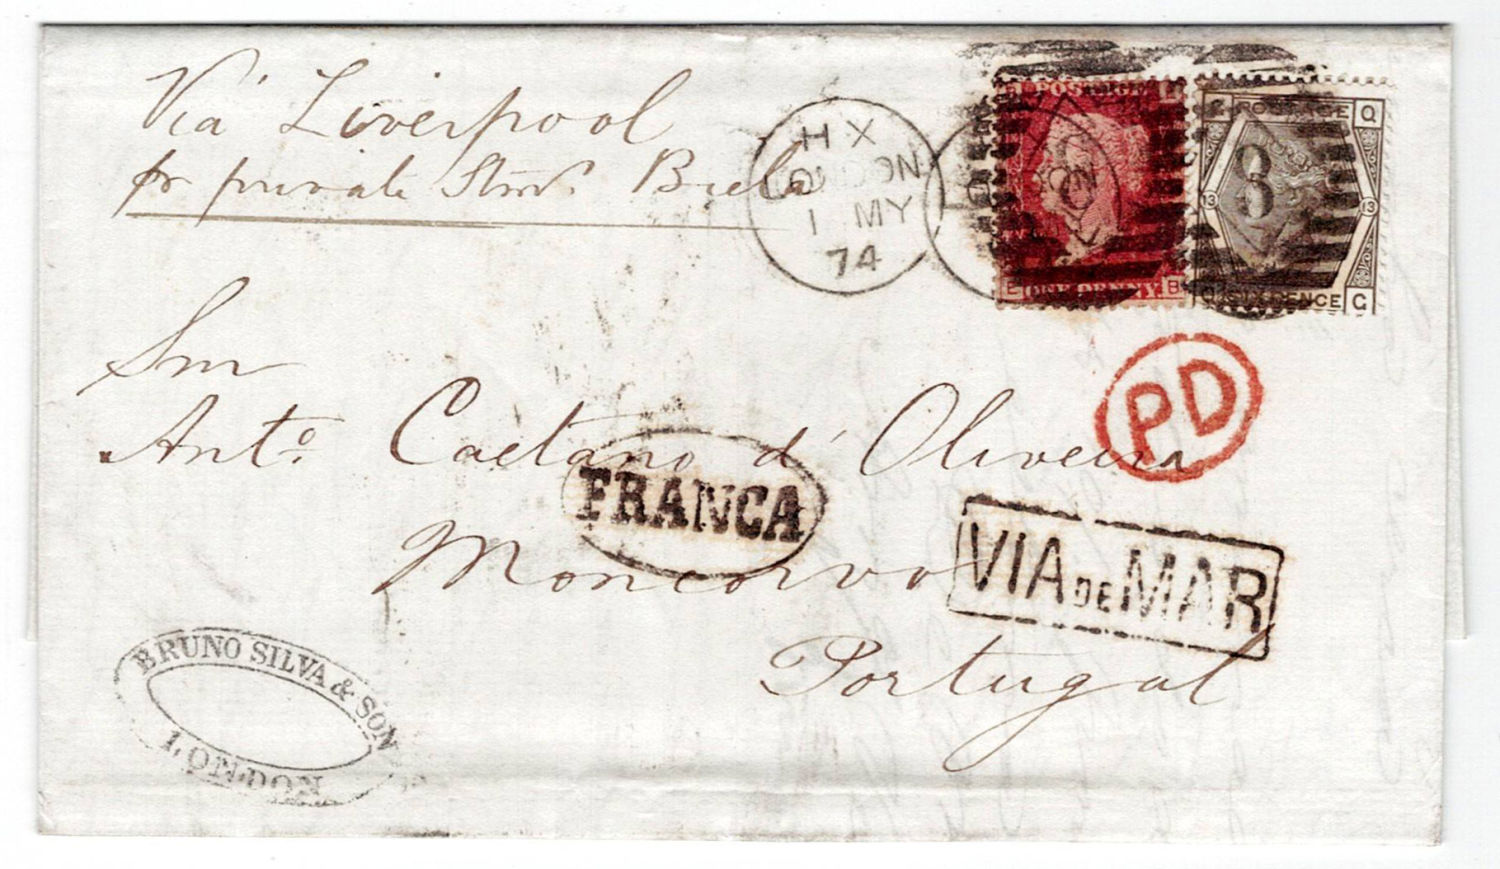 Via Liverpool
pr private Stmr. Biela
HX
LONDON
1 MY
74
POSTAGE
E B
ONE PENNY
8
POSTAGE Q
13 13
SIXPENCE G
PD
Sm
Anto. Caetano d' Oliveira
FRANCA
Moncorvo
VIA DE MAR
Portugal
BRUNO SILVA & SON
LONDON